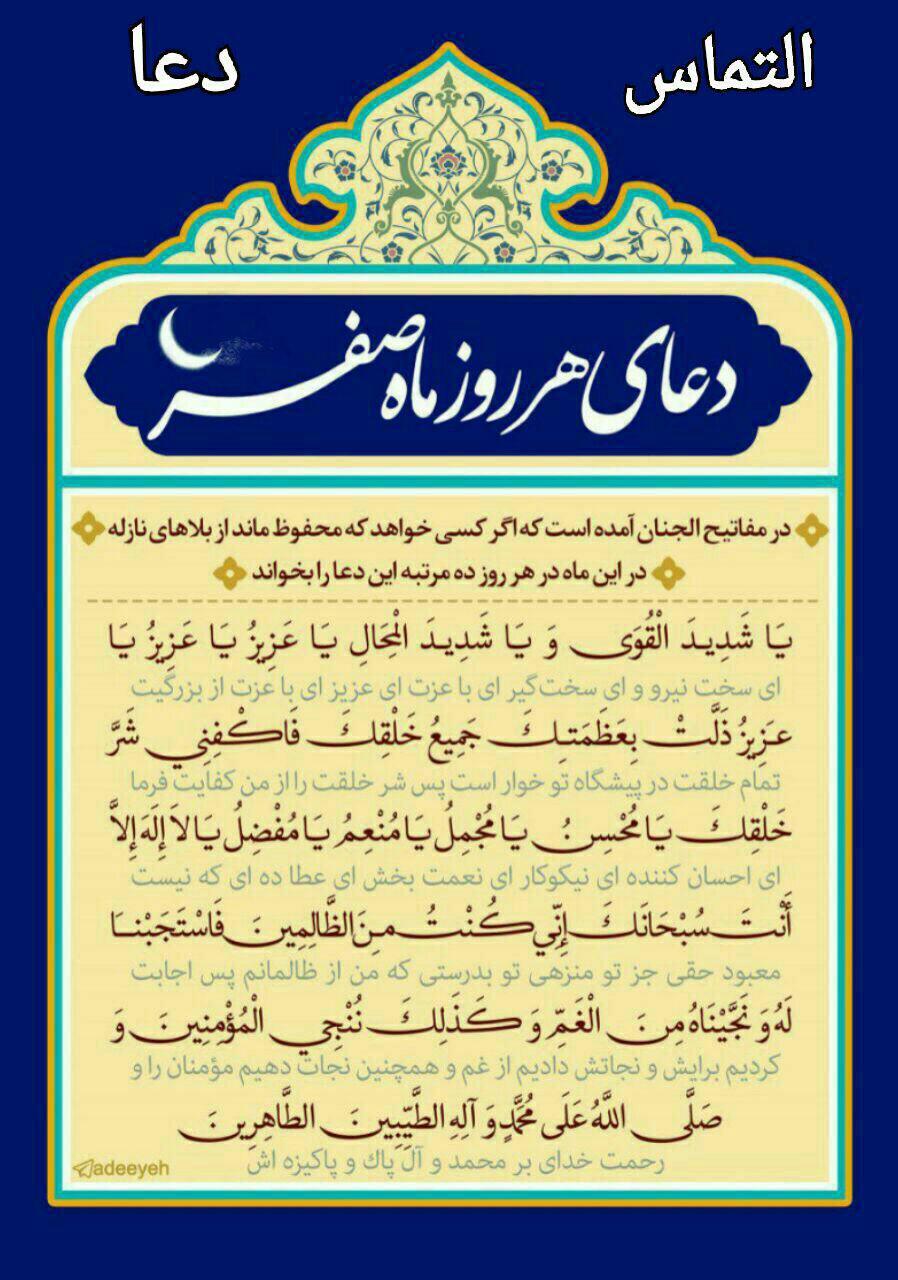 التماس دعا
دعای هر روز ماه صفر
در مفاتیح الجنان آمده است که اگر کسی خواهد که محفوظ ماند از بلاهای نازله
در این ماه در هر روز ده مرتبه این دعا را بخواند
يَا شَدِيدَ الْقُوَى وَ يَا شَدِيدَ الْمِحَالِ يَا عَزِيزُ يَا عَزِيزُ يَا
ای سخت نیرو و ای سخت‌گیر ای با عزت ای عزیز ای با عزت از بزرگیت
عَزِيزُ ذَلَّتْ بِعَظَمَتِكَ جَمِيعُ خَلْقِكَ فَاكْفِنِي شَرَّ
تمام خلقت در پیشگاه تو خوار است پس شر خلقت را از من کفایت فرما
خَلْقِكَ يَا مُحْسِنُ يَا مُجْمِلُ يَا مُنْعِمُ يَا مُفْضِلُ يَا لاَ إِلَهَ إِلاَّ
ای احسان کننده ای نیکوکار ای نعمت بخش ای عطا ده ای که نیست
أَنْتَ سُبْحَانَكَ إِنِّي كُنْتُ مِنَ الظَّالِمِينَ فَاسْتَجَبْنَا
معبود حقی جز تو منزهی تو بدرستی که من از ظالمانم پس اجابت
لَهُ وَ نَجَّيْنَاهُ مِنَ الْغَمِّ وَ كَذَلِكَ نُنْجِي الْمُؤْمِنِينَ وَ
کردیم برایش و نجاتش دادیم از غم و همچنین نجات دهیم مؤمنان را و
صَلَّى اللَّهُ عَلَى مُحَمَّدٍ وَ آلِهِ الطَّيِّبِينَ الطَّاهِرِينَ
رحمت خدای بر محمد و آل پاك و پاکیزه اش
adeeyeh